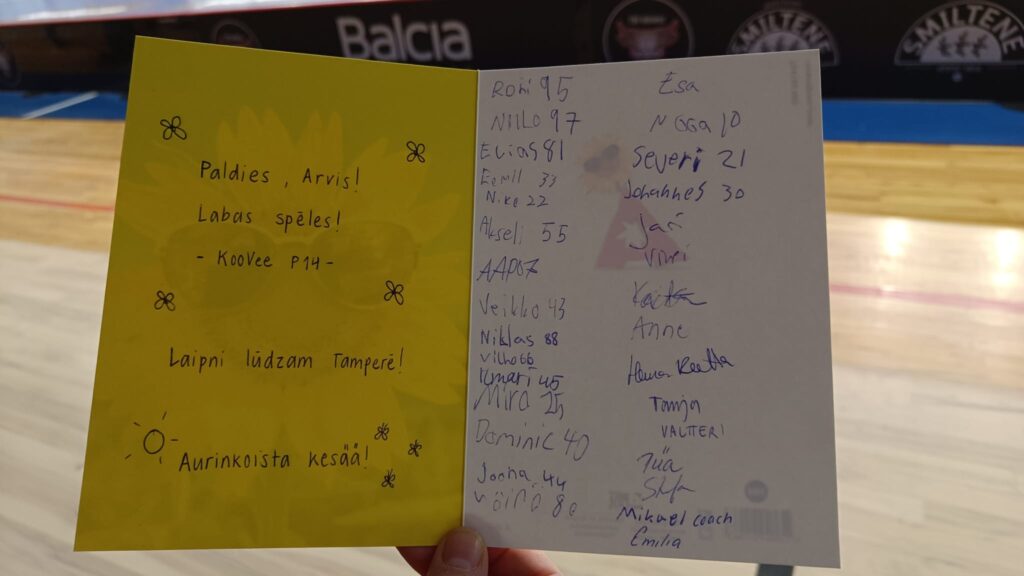 Balcia
SMILTENE
SMILTENE
Paldies, Arvis!
Labas spēles!
- KooVee P14 -
Laipni lūdzam Tamperē!
Aurinkoista kesää!
Roni 95
Niilo 97
Elias 81
Eemil 33
Nike 22
Akseli 55
AAPO 7
Veikko 43
Niklas 88
Vilho 66
Ilmari 45
Miro 25
Dominic 40
Joona 44
Väinö 80
Esa
NOOA 10
Severi 21
Johannes 30
Anne
Tanja
VALTTERI
Tiia
Mikael coach
Emilia